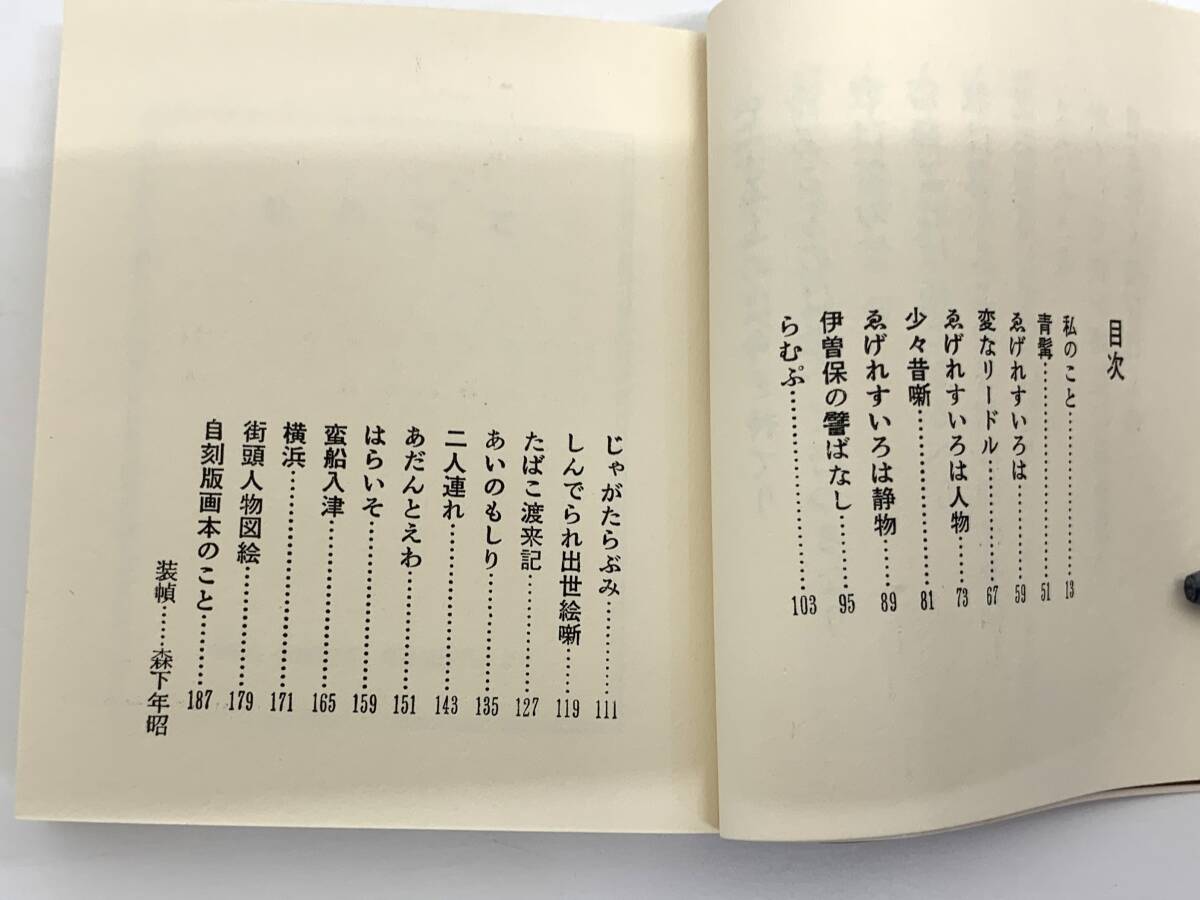 目次
私のこと……………………13
青髯……………………51
ゑげれすいろは…………59
変なリードル…………67
ゑげれすいろは人物……73
少々昔噺……………………81
ゑげれすいろは静物……89
伊曽保の譬ばなし………95
らむぷ……………………103
じゃがたらぶみ…………111
しんでられ出世絵噺……119
たばこ渡来記…………127
あいのもしり…………135
二人連れ……………………143
あだんとえわ…………151
はらいそ……………………159
蛮船入津……………………165
横浜……………………171
街頭人物図絵…………179
自刻版画本のこと………187
装幀……森下年昭